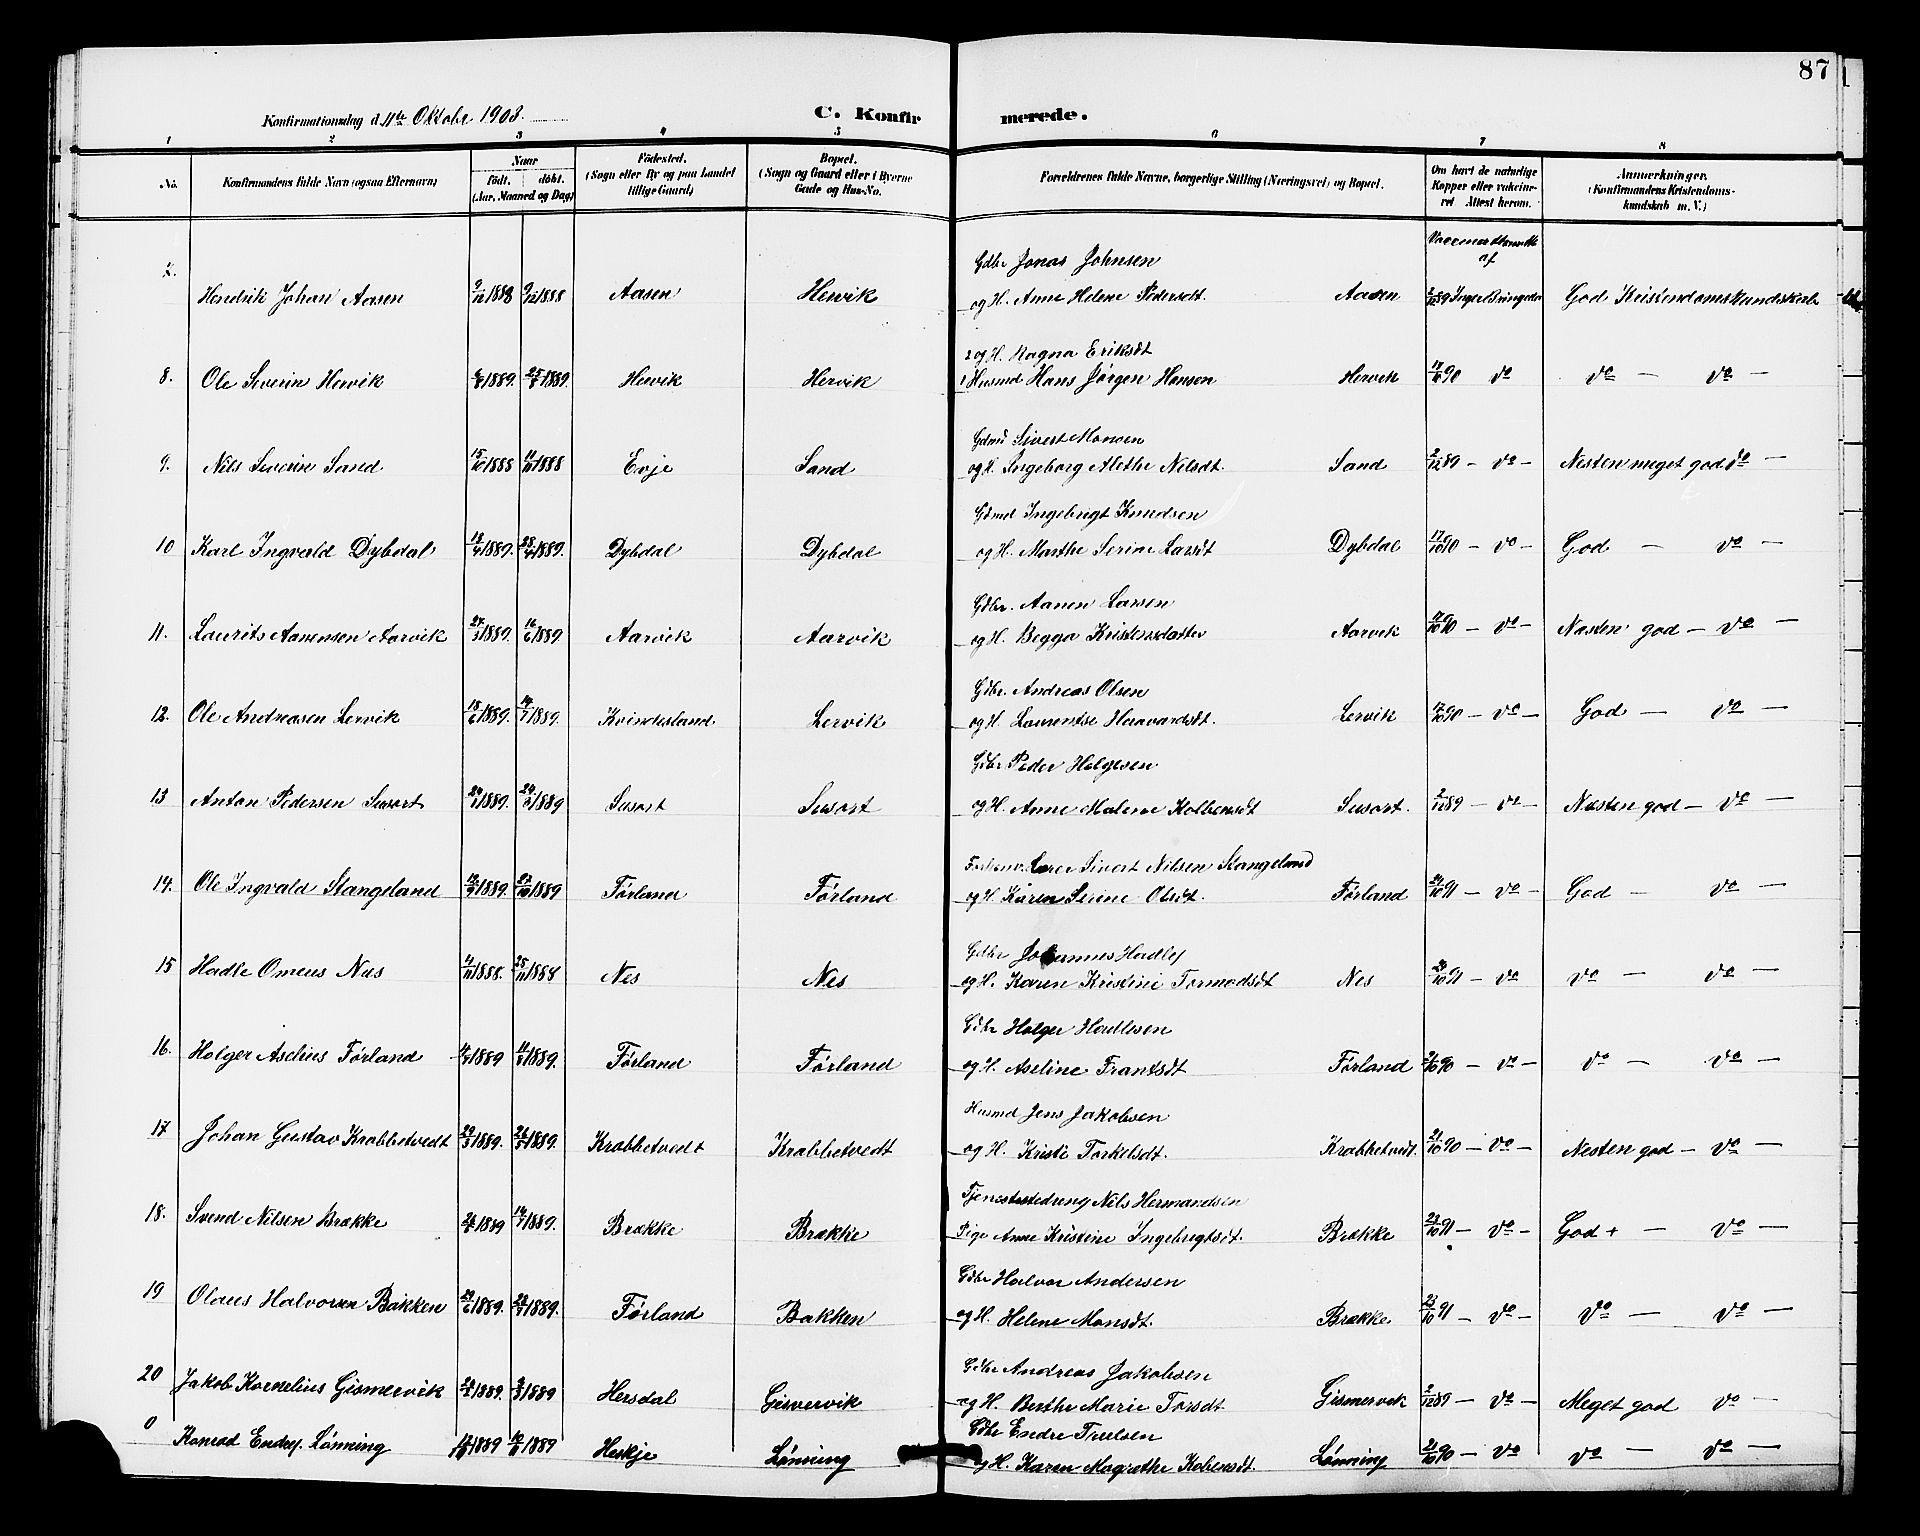 87
Konfirmationsdag d. 11te Oktober 1903.
C. Konfirmerede.
1 2 3 4 5 6 7 8
No. Konfirmandens fulde Navn (ogsaa Efternavn) Naar födt. döbt. (Aar, Maaned og Dag) Födested. (Sogn eller By og paa Landet tillige Gaard) Bopæl. (Sogn og Gaard eller i Byerne Gade og Hus-No. Forældrenes fulde Navne, borgerlige Stilling (Næringsvei) og Bopæl. Om havt de naturlige Kopper eller vakcineret Attest herom. Anmærkninger. (Konfirmandens Kristendomskundskab m. V.)
Gdbr Jonas Johnsen
7. Hendrik Johan Aasen 9/12 1888 9/12 1888 Aasen Hervik og H. Anne Helene Pedersdt. Aasen God Kristendomskundskab
2 og H. Ragna Eriksdt
8. Ole Severin Hervik 1889. 1889. Hervik Hervik 1 Husmd Hans Jørgen Hansen Hervik 17/10 90 do do — do —
Gdmd Sivert Monsen
9. Nils Severin Sand 15/10 1888 11/11 1888 Evje Sand og H. Ingeborg Alethe Nilsdt. Sand 2/12 89 — do — Nesten meget god do —
Gdmd Ingebrigt Knudsen
10 Karl Ingvald Dybdal 13/4 1889. 28/4 1889. Dybdal Dybdal og H. Marthe Serine Larsdt Dybdal 17/10 90 — do — God — do —
Gdbr. Aanen Larsen
11. Laurits Aanensen Aarvik 27/3 1889. 16/6 1889 Aarvik Aarvik og H. Begga Kristensdatter Aarvik 17/10 90 — do — Næsten god — do —
Gdbr. Andreas Olsen
12. Ole Andreasen Lervik 18/6 1889. 14/7 1889. Kvindesland Lervik og H. Laurentse Haavardsdt. Lervik 17/10 90 — do — God — do —
Gdbr Peder Helgesen
13 Anton Pedersen Susort 1889. 1889 Susort Susort og H. Anne Malene Kolbensdt Susort. 2/12 89 — do — Næsten god — do —
Sivert Nilsen Stangeland
14. Ole Ingvald Stangeland 1889. 27/10 1889 Førland Førland og H. Karen Serine Olsdt. Førland 91 — do — God — do —
Gdbr Johannes Hadlej
15 Hadle Omeus Næs 1888. 25/11 1888 Nes Nes og H. Karen Kristine Tormodsdt Nes 91 — do do — do —
Gdbr Holger Hadlesen
16. Holger Aselius Førland 1889 1889. Førland Førland og H. Aseline Frantsdt Førland 21/10 90 — do — do — do —
Husmd Jens Jakobsen
17 Johan Gustav Krabbetvedt 29/3 1889. 26/5 1889. Krabbetvedt Krabbetvedt og H. Kristi Torkelsdt. Krabbetvedt. 21/10 90 — do — Nesten god — do —
Tjenestedreng Nils Hermandsen
18. Svend Nilsen Brække 1889 14/7 1889. Brække Brække Pige Anne Kristine Ingebrigtsdt. Brække 23/10 91 — do — God + — do —
Gdbr Halvor Andersen
19 Olaus Halvorsen Bakken 29/6 1889. 28/7 1889. Førland Bakken og H. Helene Monsdt. Brække 23/10 91 — do — do — do —
Gdbr Andreas Jakobsen
20 Jakob Kornelius Gismervik 1889. 3/3 1889 Hersdal Gisvervik og H. Berthe Marie Torsdt Gismervik 2/12 89 — do — Meget god do —
Gdbr Endre Truelsen
0 Konrad Endrej. Lønning 1889 1889 Heskje Lønning og H. Karen Magrethe Kobensdt. Lønning 21/10 90 — do — do — do —